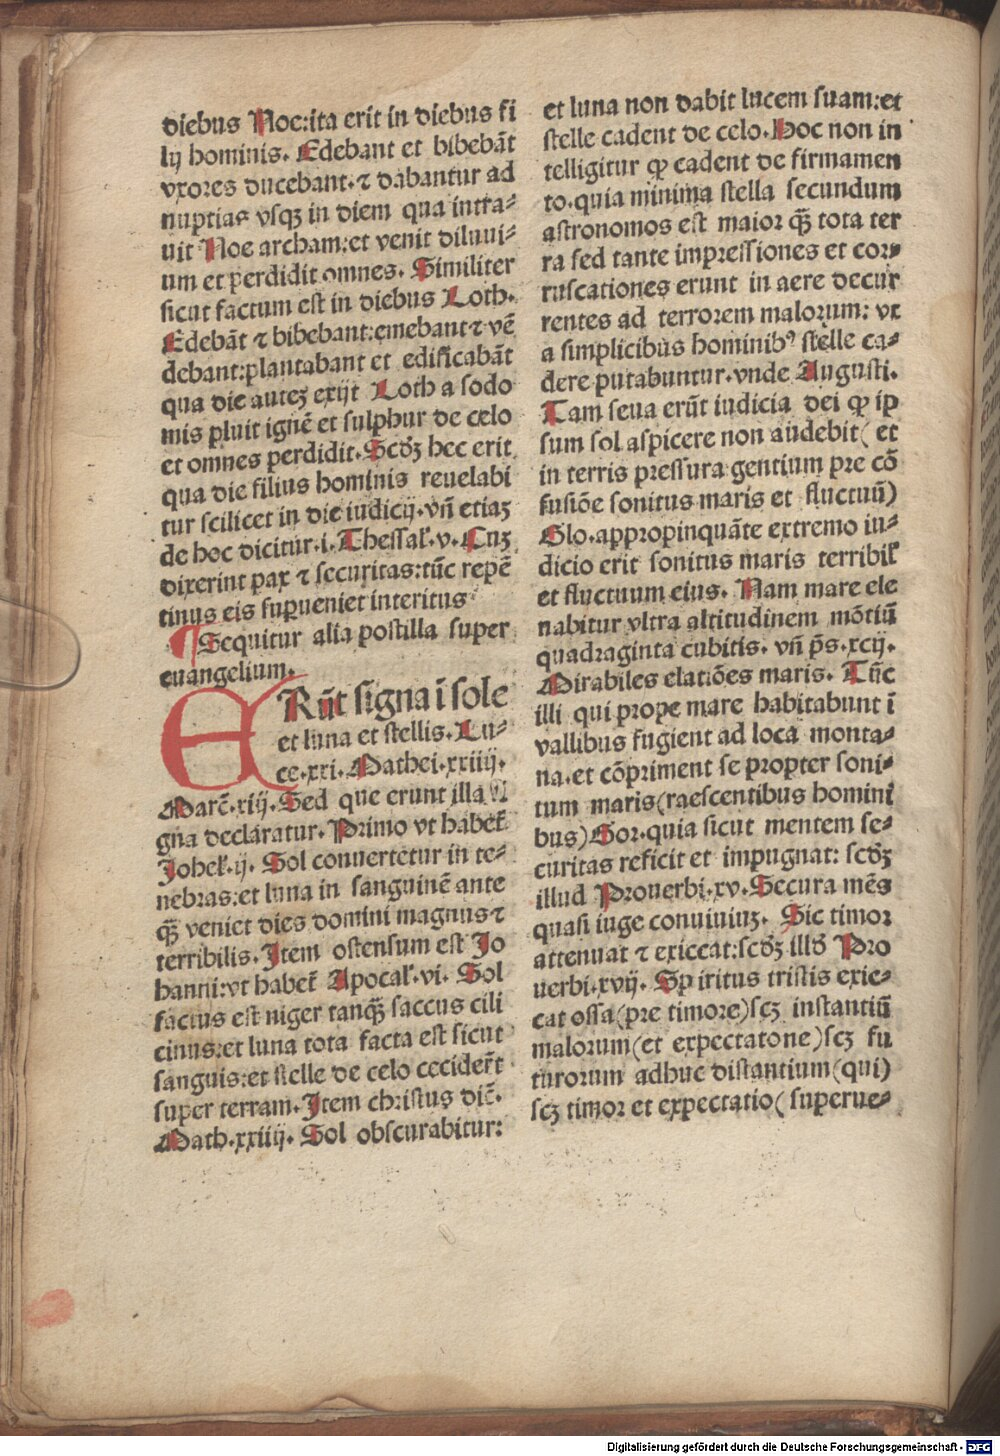 diebus Noe:ita erit in diebus fi
lij hominis. Edebant et bibebāt
vxores ducebant.⁊ dabantur ad
nuptias vsqꝫ in diem qua intra-
uit Noe archam:et venit diluui-
um et perdidit omnes. Similiter
sicut factum est in diebus Loth.
Edebāt ⁊ bibebant:emebant ⁊ vē
debant:plantabant et edificabāt
qua die auteꝫ exijt Loth a sodo
mis pluit ignē et sulphur de celo
et omnes perdidit. Scdꝫ hec erit
qua die filius hominis reuelabi
tur scilicet in die iudicij. vn̄ etiaꝫ
de hoc dicitur.i. Thessaꝉ.v. Cuꝫ
dixerint pax ⁊ securitas:tūc repē
tinus eis superueniet interitus
¶ Sequitur alia postilla super
euangelium.
ERūt signa ī sole
et luna et stellis. Lu-
ce.xxi. Mathei.xxiiij.
Marc̄.xiij. Sed que erunt illa si
gna declaratur. Primo vt habet̄
Johel.ij. Sol conuertetur in te-
nebras:et luna in sanguinē ante
qꝫ̄ veniet dies domini magnus ⁊
terribilis. Item ostensum est Jo
hanni:vt habet̄ Apocaꝉ.vi. Sol
factus est niger tanqꝫ̄ saccus cili
cinus:et luna tota facta est sicut
sanguis:et stelle de celo cecider̄t
super terram. Item christus dic̄.
Math.xxiiij. Sol obscurabitur:
et luna non dabit lucem suam:et
stelle cadent de celo. Hoc non in
telligitur ꝙ cadent de firmamen
to.quia minima stella secundum
astronomos est maior qꝫ̄ tota ter
ra sed tante impressiones et cor-
ruscationes erunt in aere decur
rentes ad terrorem malorum: vt
a simplicibus hominibꝰ stelle ca-
dere putabuntur.vnde Augusti.
Tam seua erūt iudicia dei ꝙ ip
sum sol aspicere non audebit( et
in terris pressura gentium pre cō
fusiōe sonitus maris et fluctuū)
Glo.appropinquāte extremo iu-
dicio erit sonitus maris terribiꝉ
et fluctuum eius. Nam mare ele
uabitur vltra altitudinem mōtiū
quadraginta cubitis. vn̄ p̄s.xcij.
Mirabiles elatiōes maris. Tūc
illi qui prope mare habitabunt ī
vallibus fugient ad loca monta-
na.et cōpriment se propter soni-
tum maris(raescentibus homini
bus)Gor.quia sicut mentem se-
curitas reficit et impugnat: scdꝫ
illud Prouerbi.xv. Secura mēs
quasi iuge conuiuiuꝫ. Sic timor
attenuat ⁊ exiccat:scdꝫ illd̄ Pro
uerbi.xvij. Spiritus tristis exic-
cat ossa(pre timore)scꝫ instantiū
malorum(et expectatone)scꝫ fu
turorum adhuc distantium(qui)
scꝫ timor et expectatio( superue-
Digitalisierung gefördert durch die Deutsche Forschungsgemeinschaft - DFG